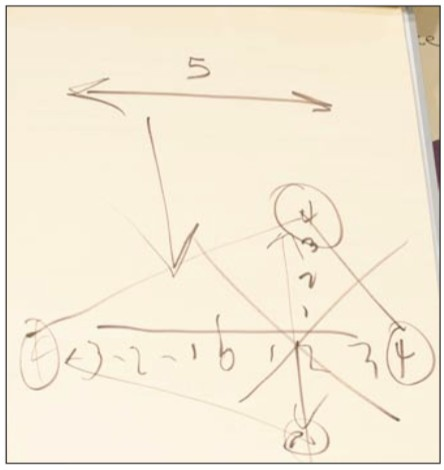 5
4
3
2
1
-3 -2 -1 0 1 2 3 4